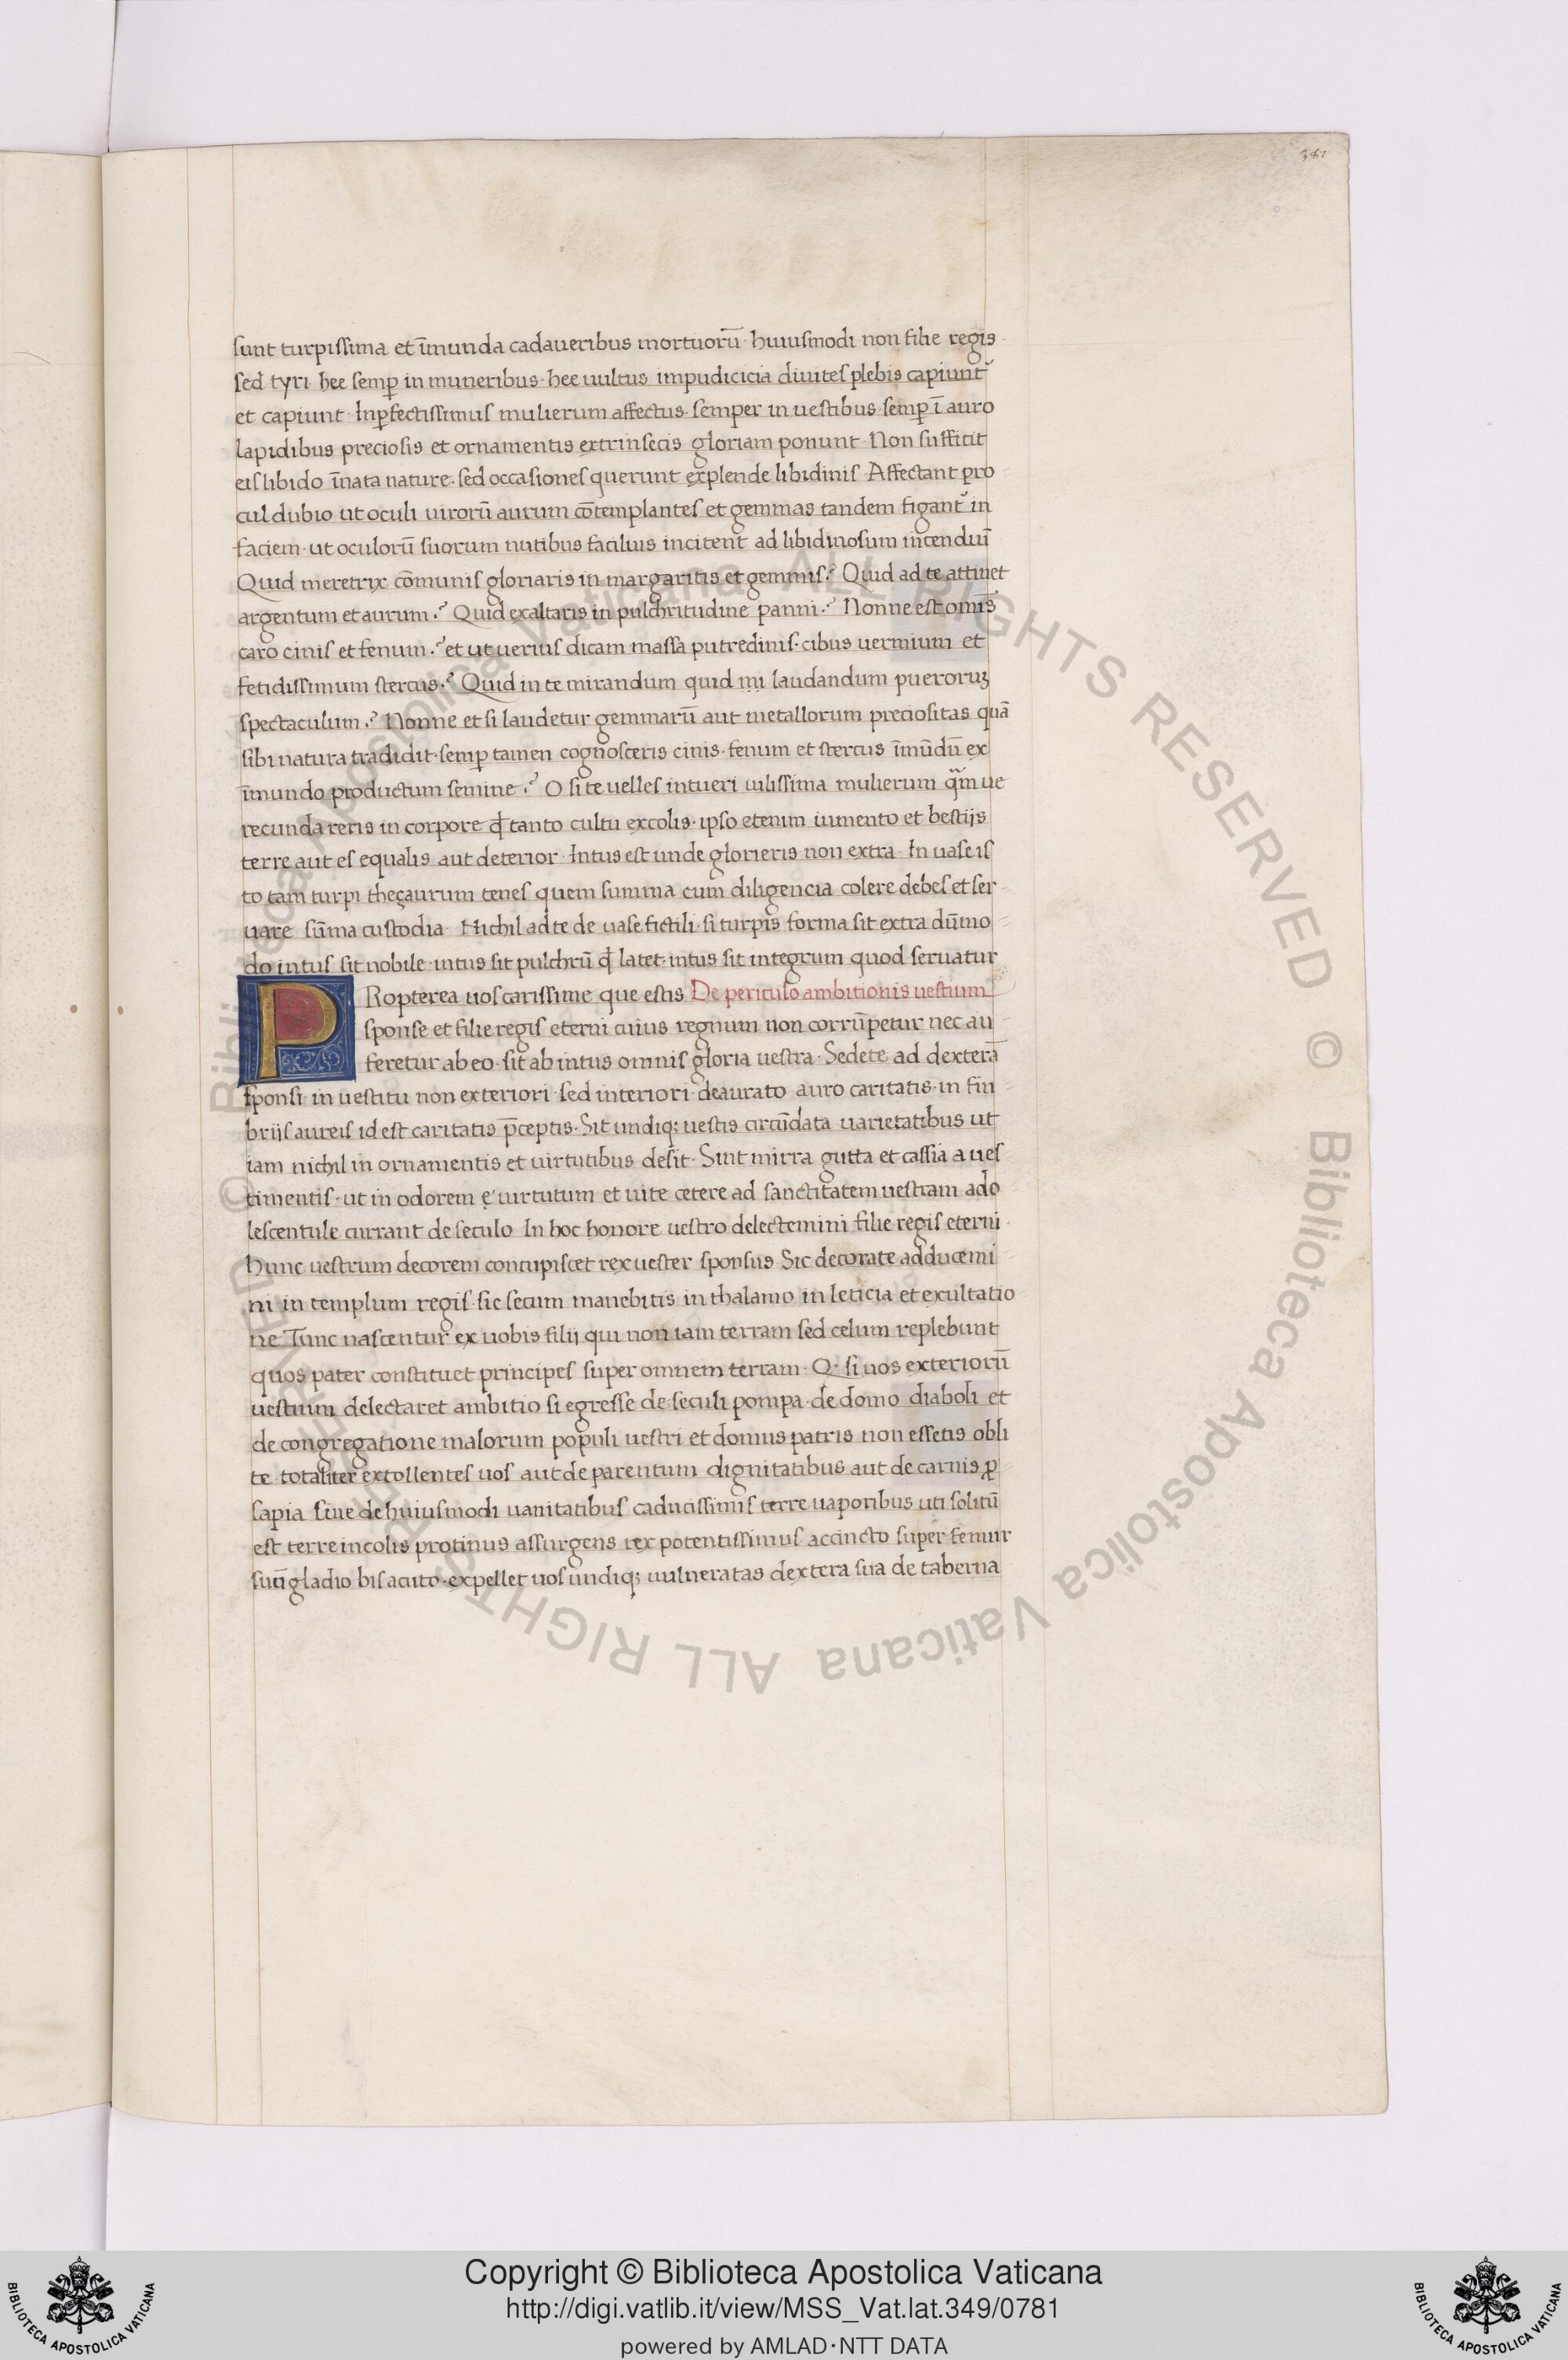 381
sunt turpissima et īmunda cadaueribus mortuorū· huiusmodi non filie regis·
sed tyri· hee semꝑ in muneribus· hee uultus impudicicia diuites plebis capiunt᷑
et capiunt· Inꝑfectissimus mulierum affectus· semper in uestibus· semꝑ ī auro
lapidibus preciosis et ornamentis extrinsecis gloriam ponunt· Non sufficit
eis libido īnata nature· sed occasiones querunt explende libidinis· Affectant pro
cul dubio ut oculi uirorū aurum cōtemplantes et gemmas tandem figant᷑ in
faciem· ut oculorū suorum nutibus facilius incitent᷑ ad libidinosum incenduī
Quid meretrix cōmunis gloriaris in margaritis et gemmis? Quid ad te attinet
argentum et aurum? Quid exaltaris in pulchritudine panni? Nonne est omīs
caro cinis et fenum? et ut uerius dicam massa putredinis· cibus uermium et
fetidissimum stercus? Quid in te mirandum quid mi laudandum pueroruꝫ
spectaculum? Nonne et si laudetur gemmarū aut metallorum preciositas quā
sibi natura tradidit· semꝑ tamen cognosceris cinis· fenum et stercus īmūdū ex
īmundo productum semine? O si te uelles intueri uilissima mulierum qᷓm ue
recunda reris in corpore qđ tanto cultu excolis· ipso etenim iumento et bestijs
terre aut es equalis aut deterior· Intus est unde glorieris non extra· In uase is
to tam turpi theçaurum tenes quem summa cum diligencia colere debes et ser
uare sūma custodia· Nichil ad te de uase fictili· si turpis forma sit extra dūmo
do intus sit nobile· intus sit pulchrū qđ latet· intus sit integrum quod seruatur
PRopterea uos carissime que estis De periculo ambitionis uestium
sponse et filie regis eterni cuius regnum non corrūpetur nec au
feretur ab eo· sit ab intus omnis gloria uestra· Sedete ad dexterā
sponsi· in uestitu non exteriori· sed interiori· deaurato auro caritatis· in fin
brijs aureis id est caritatis p̄ceptis· Sit undiqꝫ uestis circūdata uarietatibus ut
iam nichil in ornamentis et uirtutibus desit· Sint mirra gutta et cassia a ues
timentis· ut in odorem ę uirtutum et uite cetere ad sanctitatem uestram ado
lescentule currant de seculo· In hoc honore uestro delectemini filie regis eterni·
hunc uestrum decorem concupiscet rex uester sponsus· Sic decorate adducemi
ni in templum regis· sic secum manebitis in thalamo in leticia et exultatio
ne· Tunc nascentur ex uobis filij qui non iam terram sed celum replebunt
quos pater constituet principes super omnem terram· Q· si uos exteriorū
uestium delectaret ambitio si egresse de seculi pompa· de domo diaboli et
de congregatione malorum populi uestri et domus patris non essetis obli
te· totaliter extollentes uos aut de parentum dignitatibus aut de carnis ꝓ
sapia siue de huiusmodi uanitatibus caducissimis terre uaporibus uti solitū
est terre incolis protinus assurgens rex potentissimus· accincto super femur
suū gladio bis acuto· expellet uos undiqꝫ uulneratas dextera sua de taberna
© Biblioteca Apostolica Vaticana ALL RIGHTS RESERVED © Biblioteca Apostolica Vaticana ALL RIGHTS RESERVED
Copyright © Biblioteca Apostolica Vaticana
http://digi.vatlib.it/view/MSS_Vat.lat.349/0781
powered by AMLAD·NTT DATA
BIBLIOTECA APOSTOLICA VATICANA
BIBLIOTECA APOSTOLICA VATICANA